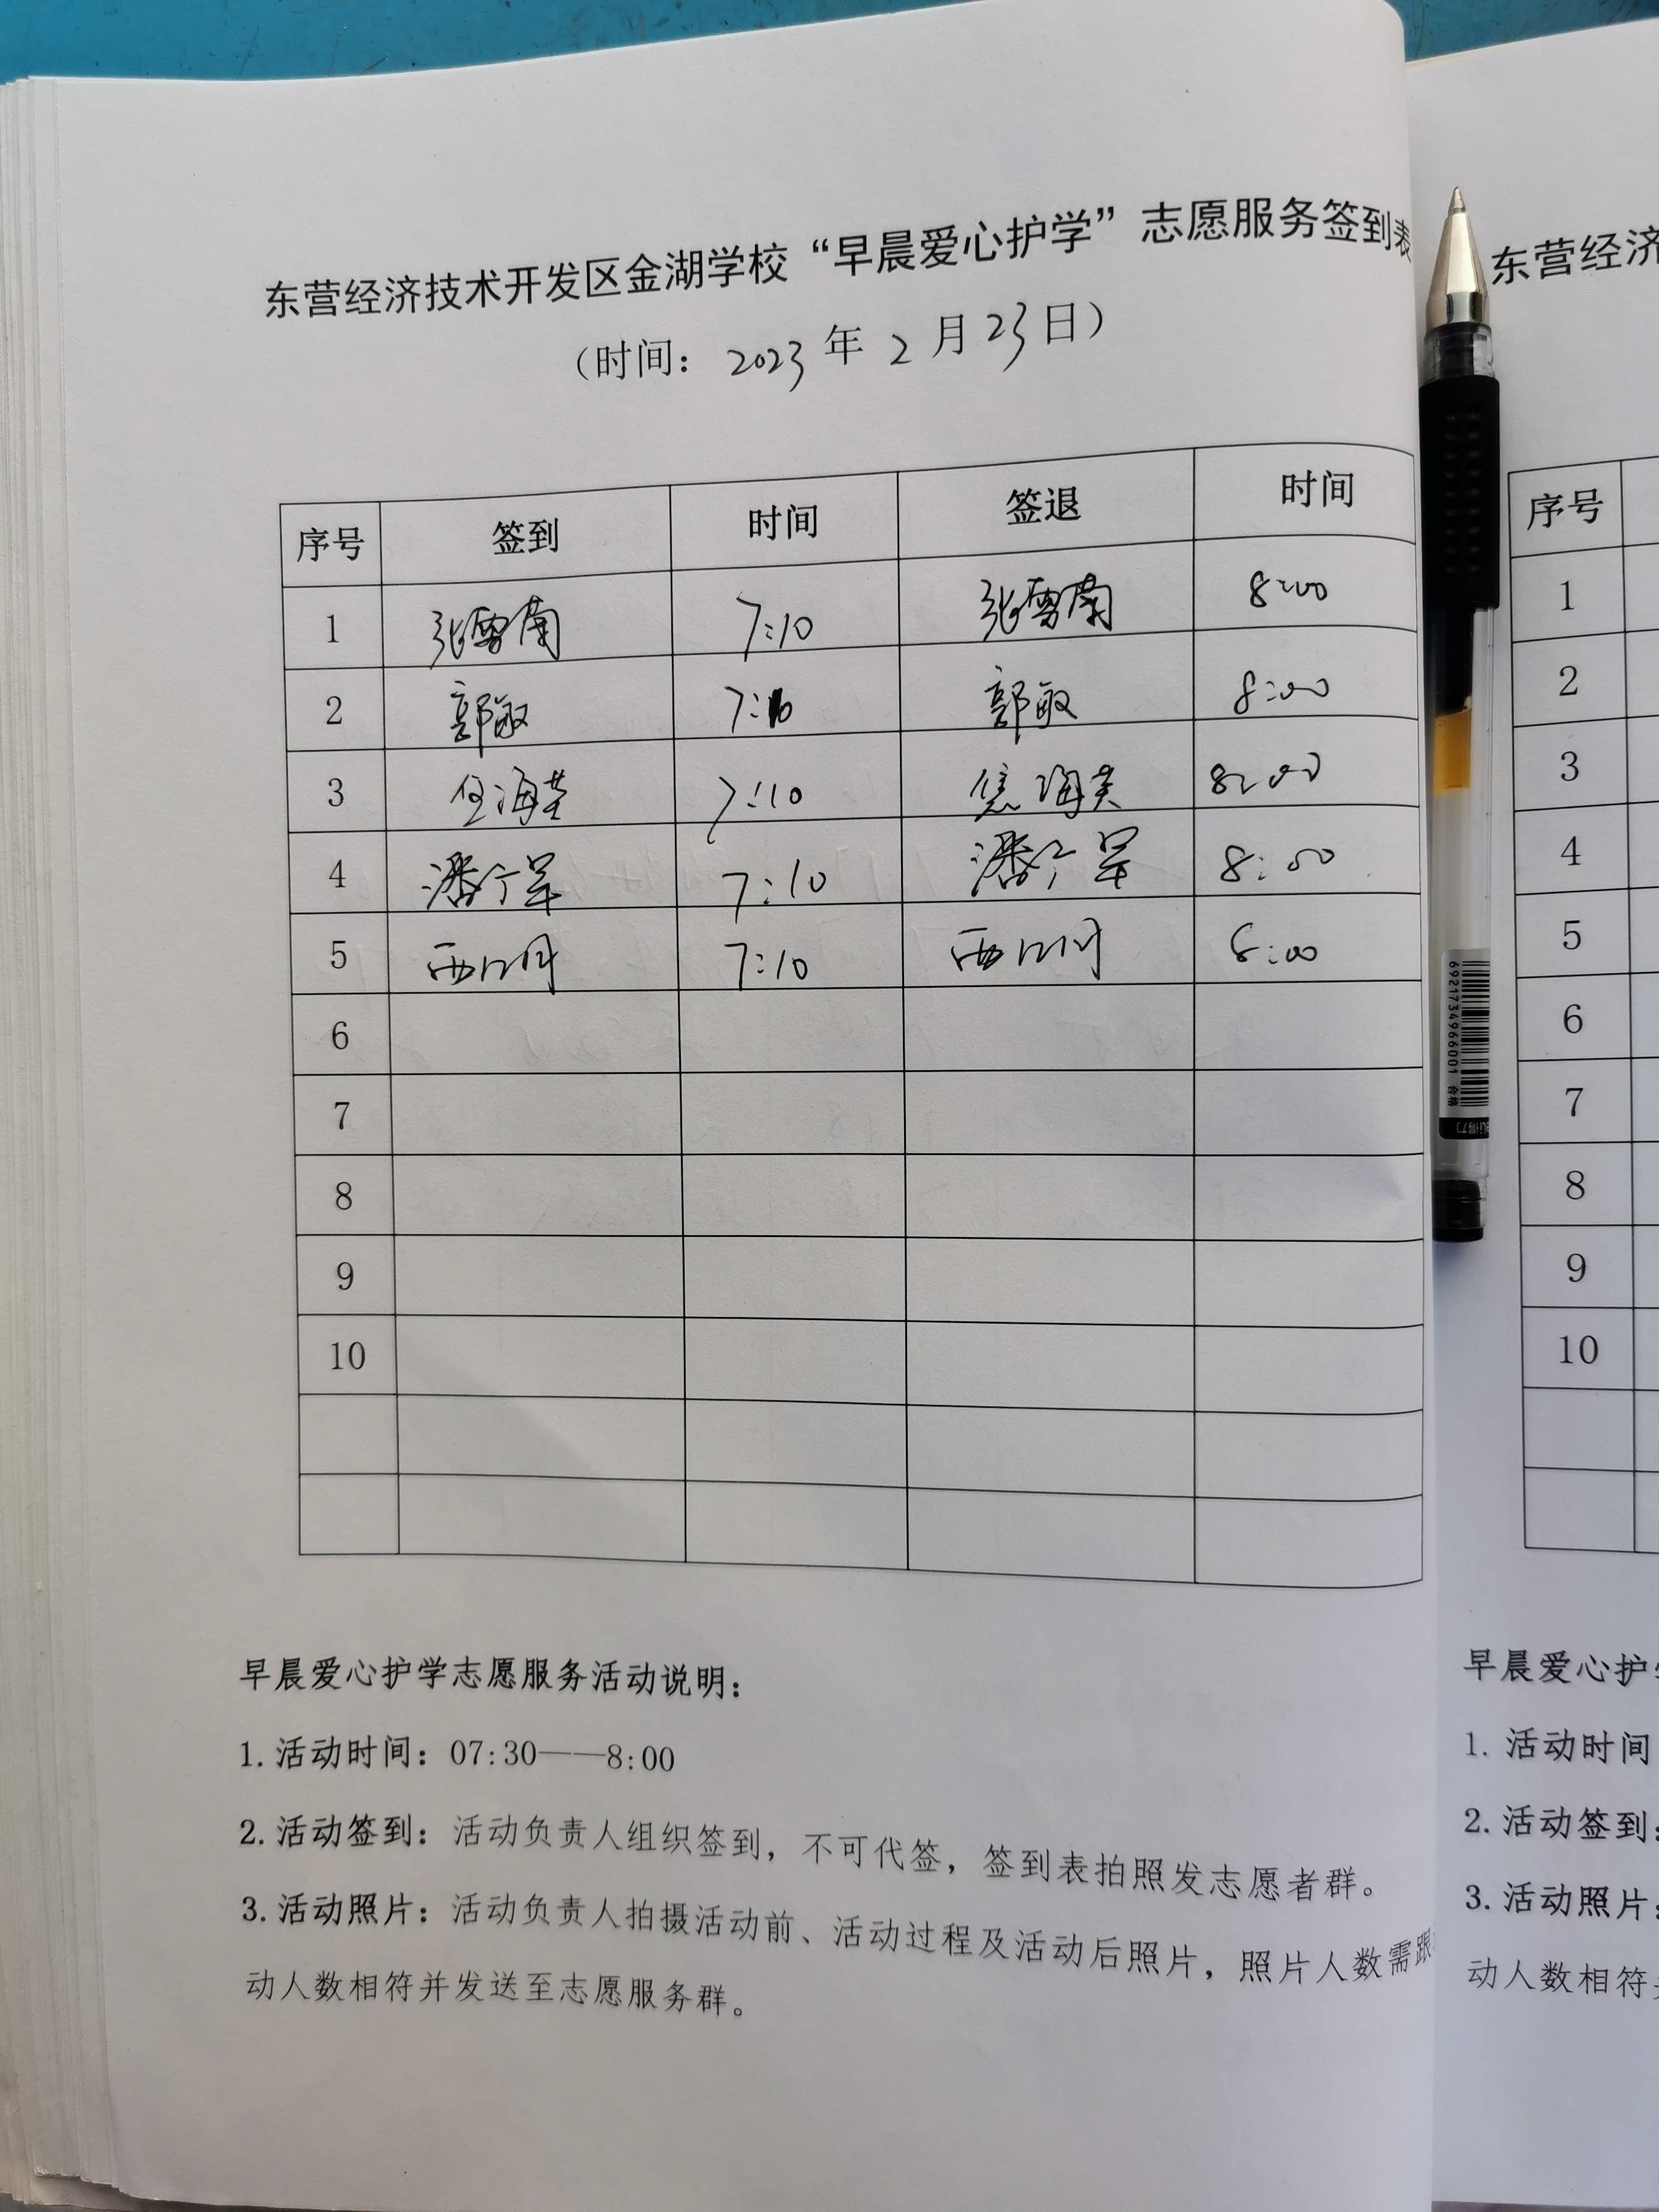 东营经济技术开发区金湖学校“早晨爱心护学”志愿服务签到表
（时间： 2023 年 2 月 23 日）
序号 签到 时间 签退 时间
1 张雪南 7:10 张雪南 8:00
2 郭敏 7:10 郭敏 8:00
3 7:10 8:00
4 潘宁军 7:10 潘宁军 8:00
5 7:10 8:00
6
7
8
9
10
早晨爱心护学志愿服务活动说明：
1. 活动时间：07:30——8:00
2. 活动签到：活动负责人组织签到，不可代签，签到表拍照发志愿者群。
3. 活动照片：活动负责人拍摄活动前、活动过程及活动后照片，照片人数需跟
动人数相符并发送至志愿服务群。
6921734966001 合格
得力
东营经济
序号
1
2
3
4
5
6
7
8
9
10
早晨爱心护
1. 活动时间
2. 活动签到：
3. 活动照片：
动人数相符